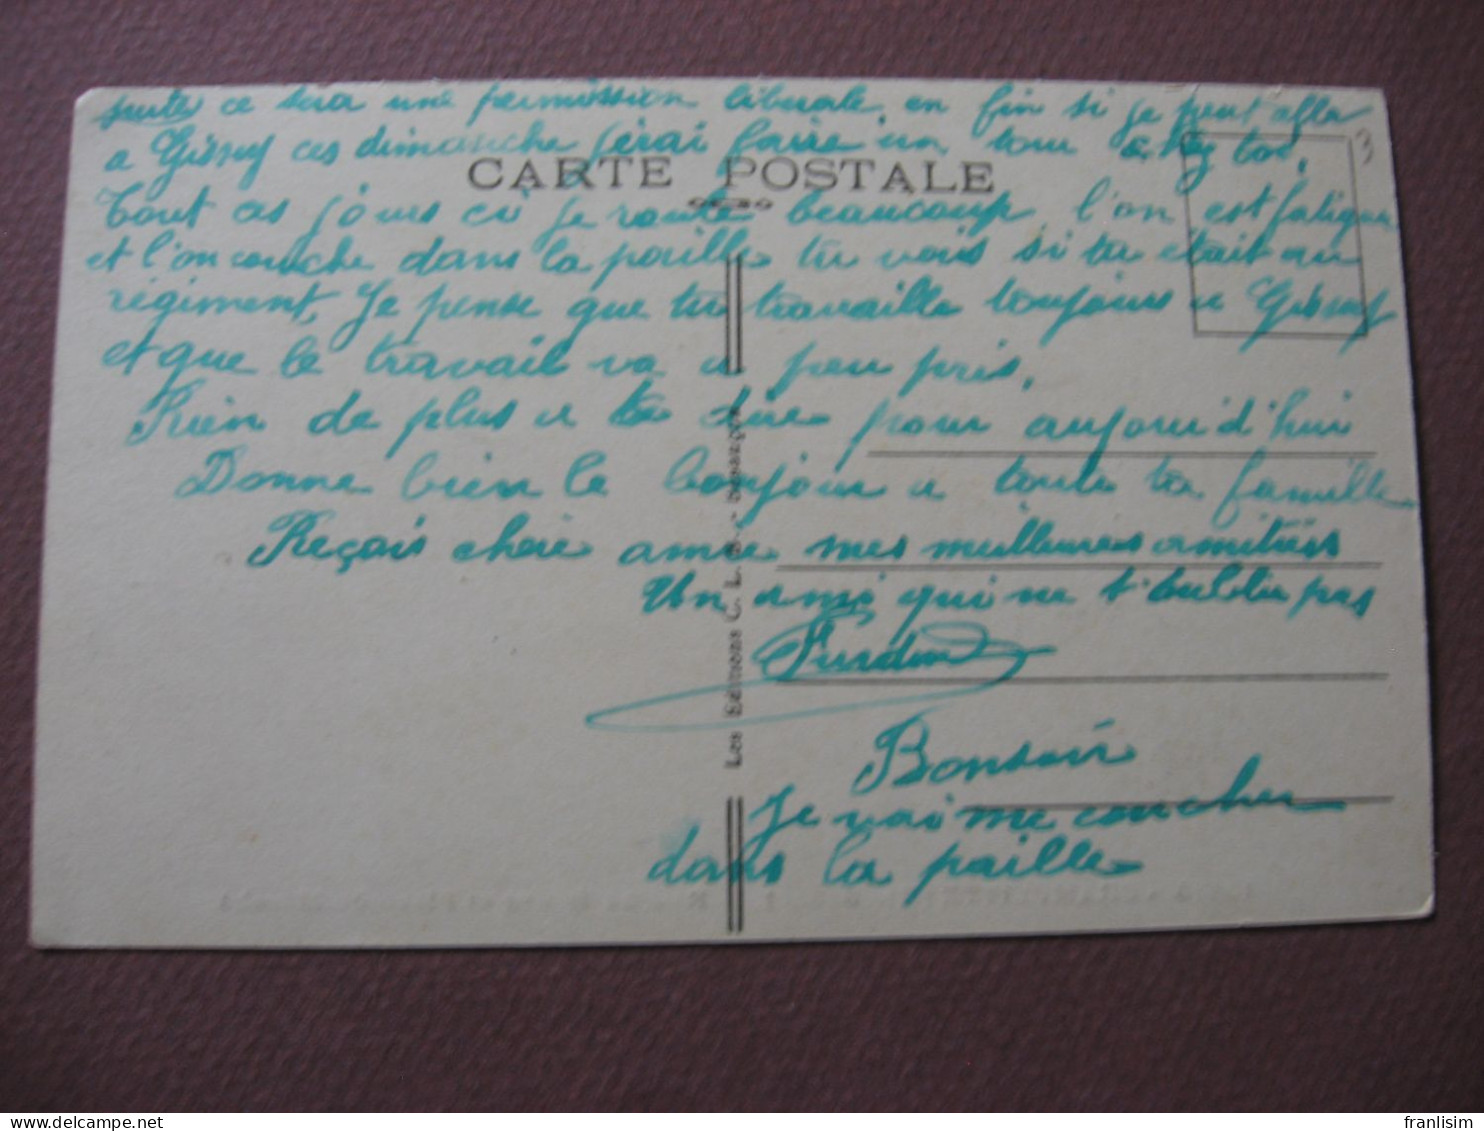 suite ce sera une permission liberale, en fin si je peut aller
a Gissey ces dimanche j'érai faire un tour chez toi.
CARTE POSTALE
Tout ces jours ci je roule beaucoup, l'on est fatigué
et l'on couche dans la paille tu vois si tu était au
régiment, Je pense que tu travaille toujours a Gissey
et que le travail va a peu pris.
Rien de plus a te dire pour aujourd'hui
Donne bien le bonjour a toute ta famille
Reçois chère amie mes meilleures amitiés
Un ami qui ne t'oublie pas
Bonsoir
Je vai me coucher
dans la paille
Les Editions C. L. B. - Besançon
3
franlisim